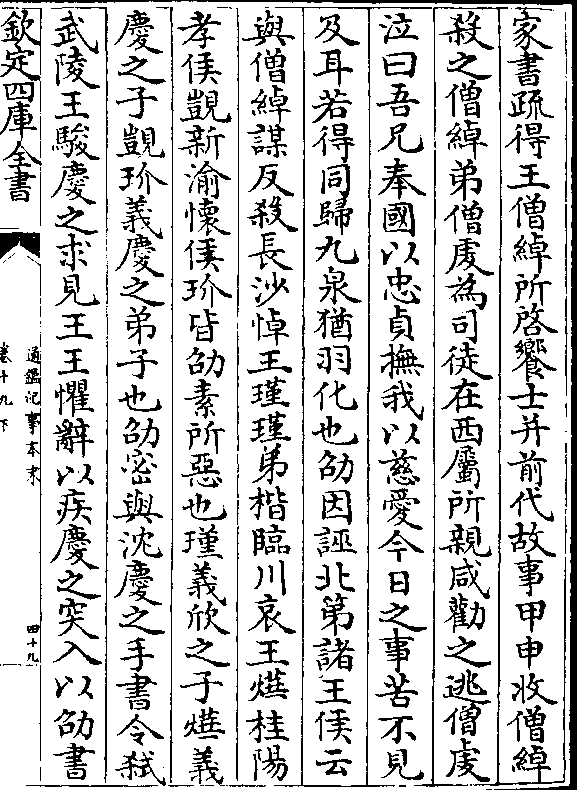 家書疏得王僧綽所啓饗士并前代故事甲申收僧綽
殺之僧綽弟僧虔為司徒左西屬所親咸勸之逃僧虔
泣曰吾兄奉國以忠貞撫我以慈愛今日之事苦不見
及耳若得同歸九泉猶羽化也劭因誣北第諸王侯云
與僧綽謀反殺長沙悼王瑾瑾弟楷臨川哀王燁桂陽
孝侯覬新渝懷侯玠皆劭素所惡也瑾義欣之子燁義
慶之子覬玠義慶之弟子也劭密與沈慶之手書令弒
武陵王駿慶之求見王王懼辭以疾慶之突入以劭書
欽定四庫全書
通鑑紀事本末
卷十九下
四十九